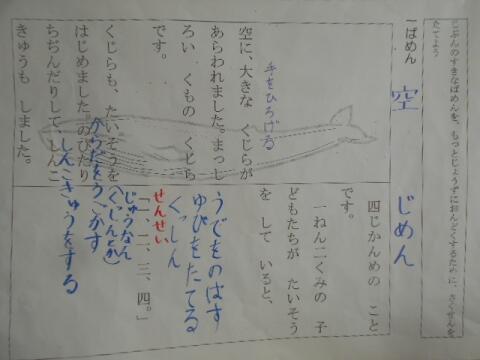 じぶんのすきなばめんを、もっとじょうずにおんどくするために、さくせんを
たてよう
一ばめん
空
じめん
空に、大きな くじらが
あらわれました。まっし
ろい くもの くじら
です。
くじらも、たいそうを
はじめました。のびたり
ちぢんだりして、しんこ
きゅうも しました。
手をひろげる
からだをうごかす
しんこきゅうをする
四じかんめの こと
です。
一ねん二くみの 子
どもたちが たいそう
を して いると、
「一、二、三、四。」
うでをのばす
ゆびをたてる
くっしん
せんせい
じゅうなん
(くっしんとか)